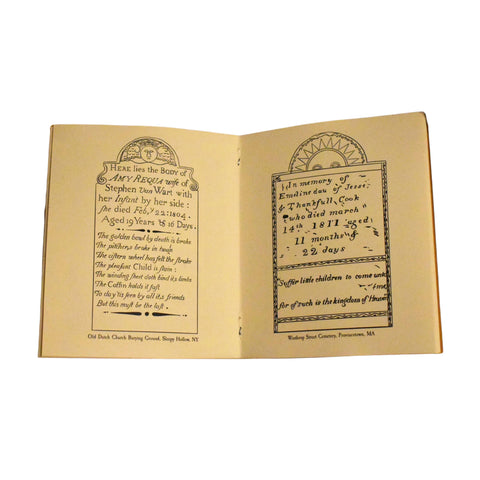 HERE lies the BODY of
AMY REQUA wife of
Stephen Van Wart with
her Infant by her side :
she died Feb, y 22: 1804.
Aged 19 Years & 16 Days.
The golden bowl by death is broke
The pitcher broke in twain
The cistern wheel has felt the stroke
The pleasant Child is slain :
The winding sheet doth bind its limbs
The Coffin holds it fast
To day tis seen by all it's friends
But this must be the last.
Old Dutch Church Burying Ground, Sleepy Hollow, NY
In memory of
Emeline dau of Jesse
& Thankfull Cook
who died march
14th 1811 aged
11 months &
22 days
Suffer little children to come unto
me
for of such is the kingdom of Heaven
Winthrop Street Cemetery, Provincetown, MA